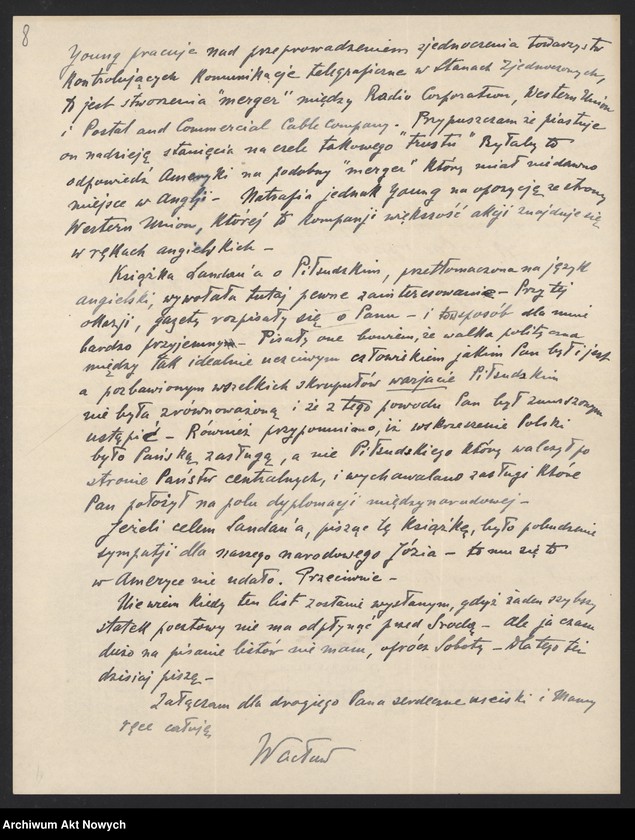 8
Young pracuje nad przeprowadzeniem zjednoczenia towarzystw
Kontrolujących Komunikacje telegraficzne w Stanach Zjednoczonych,
to jest stworzenia "merger" między Radio Corporation, Western Union
i Postal and Commercial Cable Company. Przypuszczam że piastuje
on nadzieję stanięcia na czele takowego "trustu" Byłaby to
odpowiedź Ameryki na podobny "merger" który miał niedawno
miejsce w Anglji - Natrafia jednak Young na opozycję ze strony
Western Union, której to kompanji większość akcji znajduje się
w rękach angielskich -
Książka Landau'a o Piłsudskim, przetłomaczona na język
angielski, wywołała tutaj pewne zainteresowanie - Przy tej
okazji, gazety rozpisały się o Panu - i to w sposób dla mnie
bardzo przyjemny - Pisały one bowiem, że walka polityczna
między tak idealnie uczciwym człowiekiem jakim Pan był i jest
a pozbawionym wszelkich skrupułów warjacie Piłsudskim
nie była zrównoważoną i że z tego powodu Pan był zmuszonym
ustąpić - Również przypomniano, iż wskrzeszenie Polski
było Pańską zasługą, a nie Piłsudskiego który walczył po
stronie Państw centralnych, i wychwalano zasługi które
Pan położył na polu dyplomacji międzynarodowej -
Jeżeli celem Landau'a, pisząc tę książkę, było pobudzenie
sympatji dla naszego narodowego Józia - to mu się to
w Ameryce nie udało. Przeciwnie -
Nie wiem kiedy ten list zostanie wysłanym, gdyż żaden szybszy
statek pocztowy nie ma odpłynąć przed Środą - Ale ja czasu
dużo na pisanie listów nie mam, oprócz Soboty - Dlatego też
dzisiaj piszę -
Załączam dla drogiego Pana serdeczne uściski i Mamy
ręce całuję
Wacław
Archiwum Akt Nowych